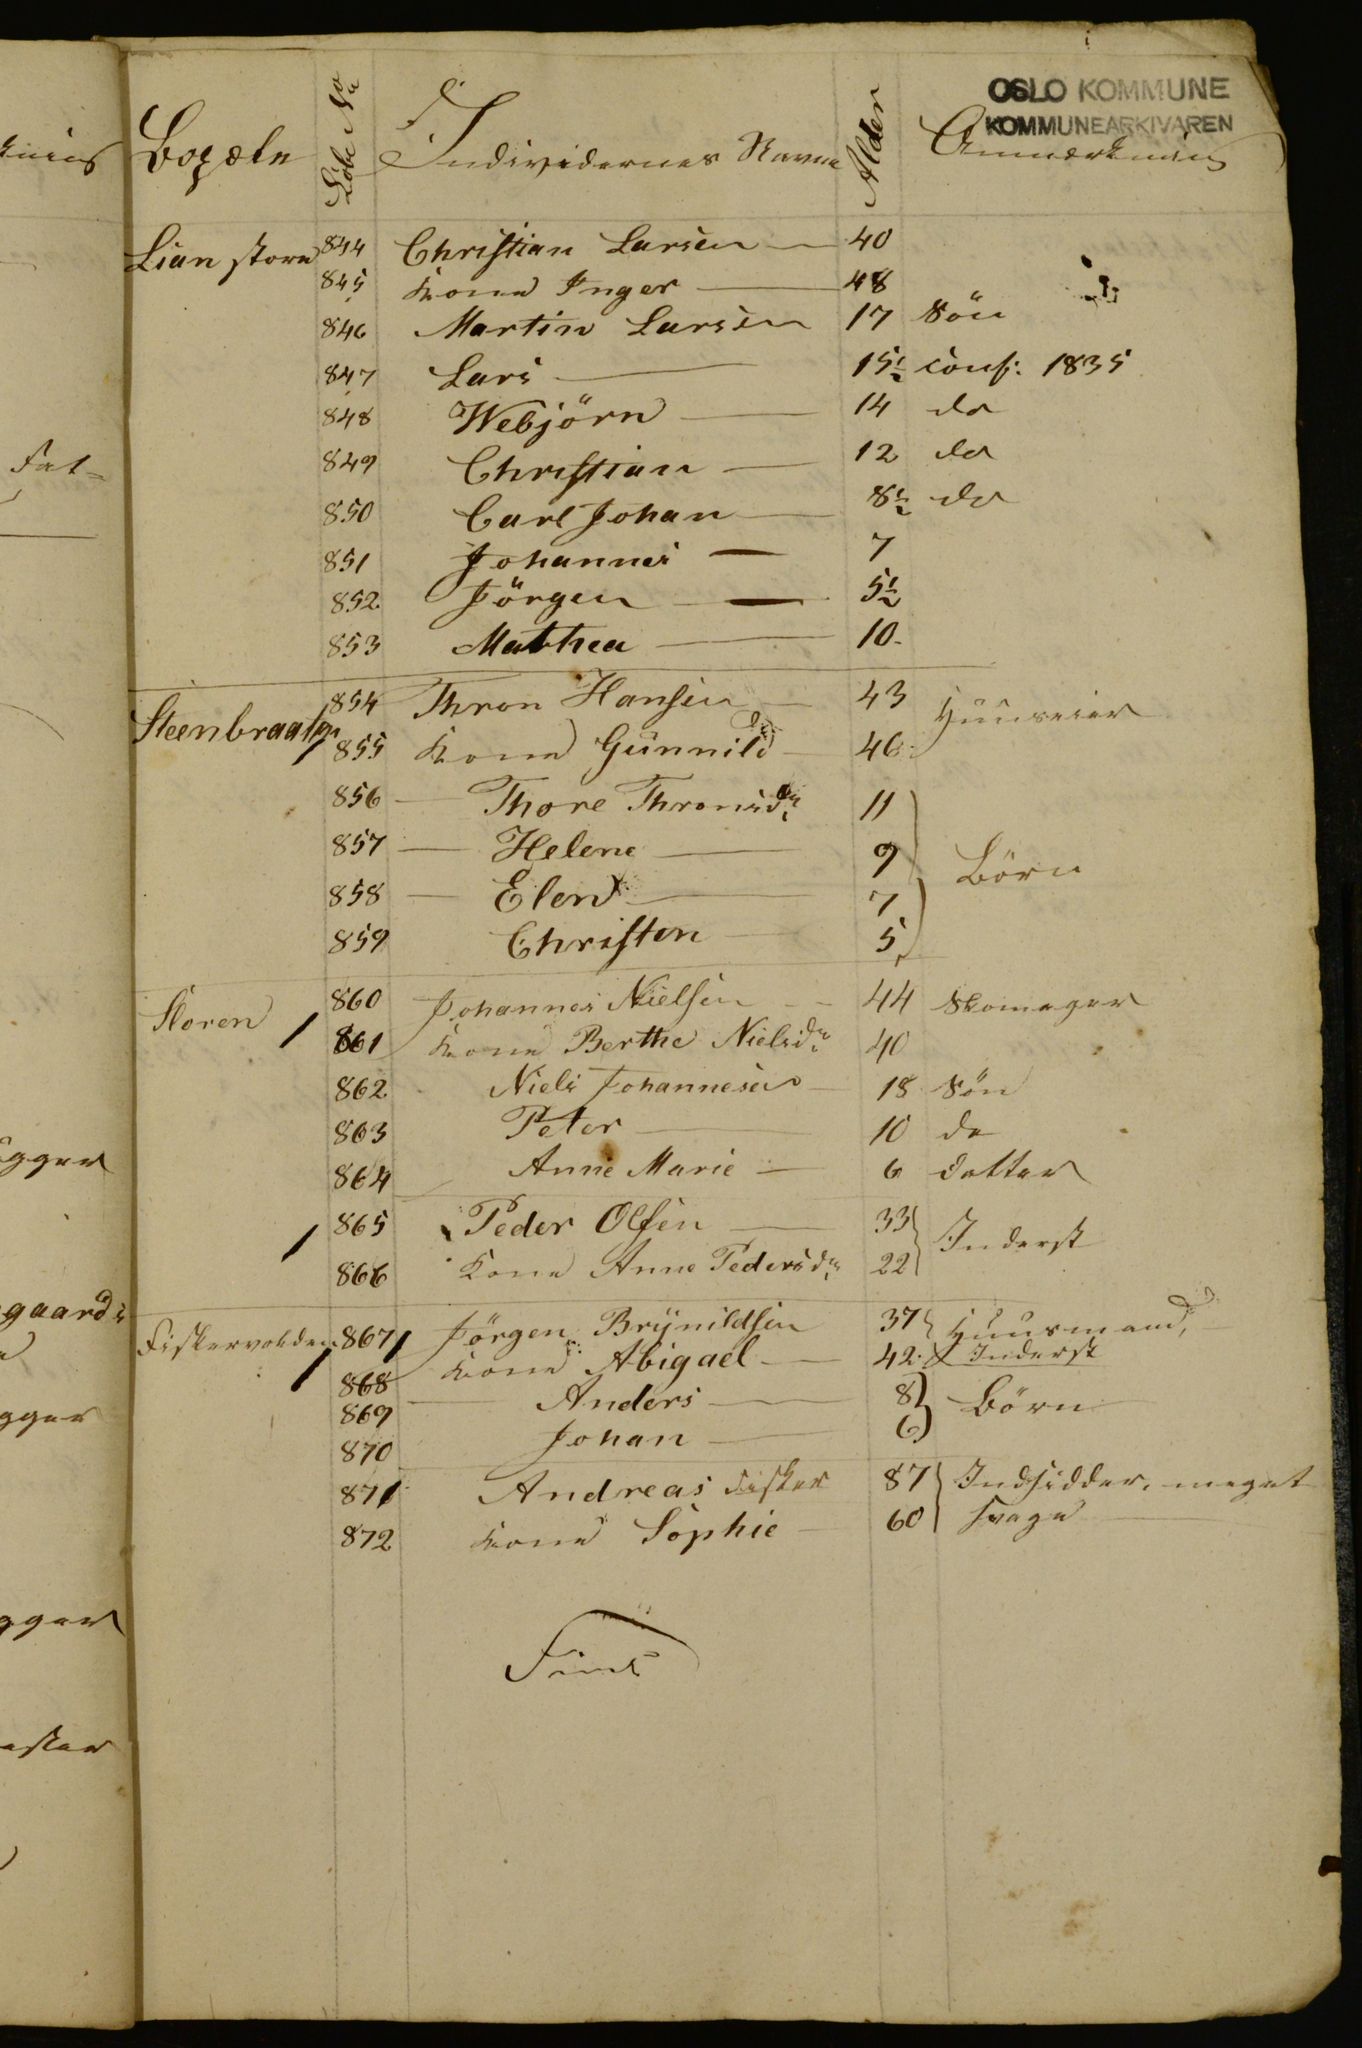 OSLO KOMMUNE
KOMMUNEARKIVAREN
Bopæle Löbe No Individernes Navne Alder Anmærkning
Lian store 844 Christian Larsen — 40
845 Kone Inger — 48
846 Martin Larsen 17 Sön
847 Lars — 15½ conf: 1835
848 Webjörn — 14 do
849 Christian — 12 do
850 Carl Johan — 8½ do
851 Johannes — 7
852 Jörgen — 5½
853 Mathea — 10
Steenbraaten 854 Thron Hansen — 43 Huuseier
855 Kone Gunnild — 46
856 — Thore Thronsdr 11
857 — Helene — 9 Börn
858 — Elen — 7
859 Christen — 5
Storen 860 Johannes Nielsen — 44 Skomager
861 Kone Berthe Nielsdr 40
862 Niels Johannesen — 18 Sön
863 Peter — 10 do
864 Anne Marie — 6 datter
865 Peder Olsen — 33 Inderst
866 Kone Anne Pedersdr 22
Fiskervolden 867 Jörgen Brynildsen 37 Huusmand,
868 Kone Abigael — 42 Inderst
869 — Anders — 8 Börn
870 Johan — 6
871 Andreas Fisker 87 Indsidder, meget
872 Kone Sophie — 60 svage
Finis
Fat=
gaards